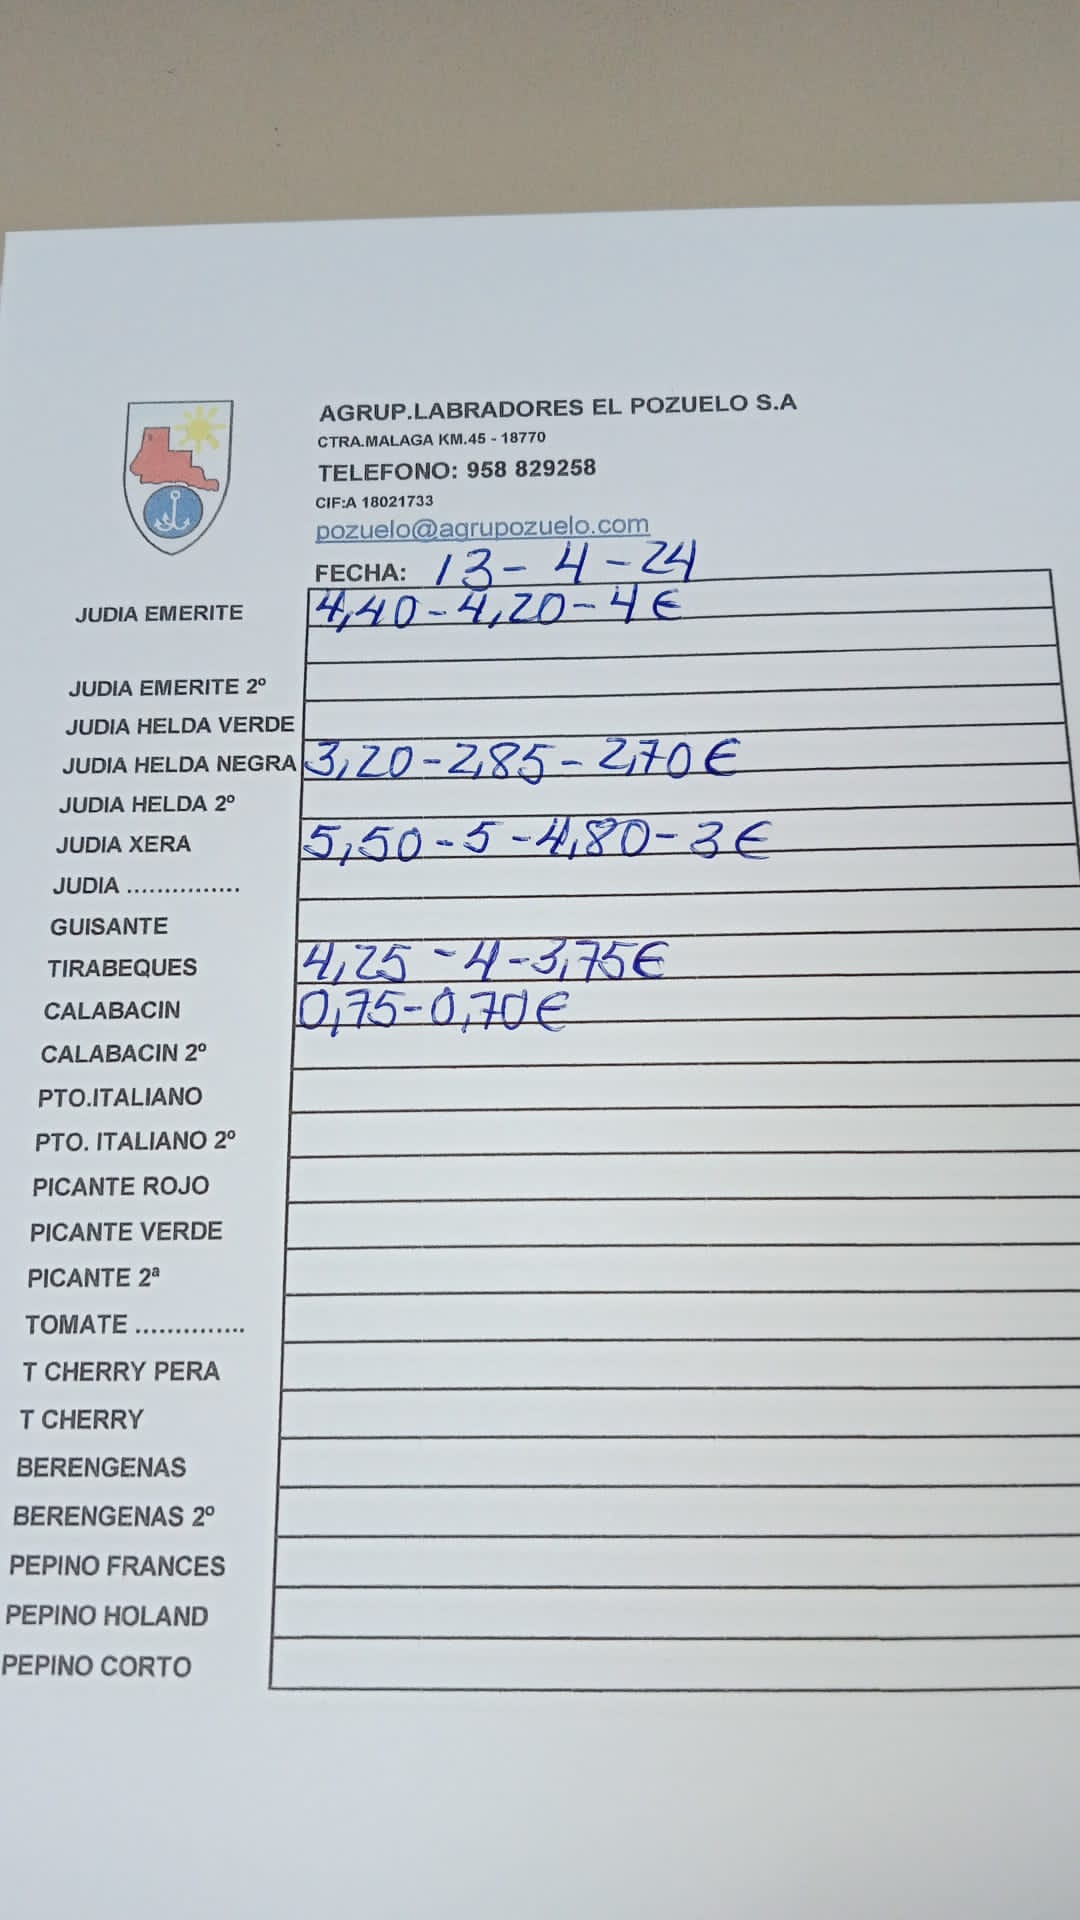 AGRUP.LABRADORES EL POZUELO S.A
CTRA.MALAGA KM.45 - 18770
TELEFONO: 958 829258
CIF:A 18021733
pozuelo@agrupozuelo.com
FECHA: 13-4-24
JUDIA EMERITE 4,40-4,20-4€
JUDIA EMERITE 2º
JUDIA HELDA VERDE
JUDIA HELDA NEGRA 3,20-2,85-2,70€
JUDIA HELDA 2º
JUDIA XERA 5,50-5-4,80-3€
JUDIA ...............
GUISANTE
TIRABEQUES 4,25-4-3,75€
CALABACIN 0,75-0,70€
CALABACIN 2º
PTO.ITALIANO
PTO. ITALIANO 2º
PICANTE ROJO
PICANTE VERDE
PICANTE 2ª
TOMATE ..............
T CHERRY PERA
T CHERRY
BERENGENAS
BERENGENAS 2º
PEPINO FRANCES
PEPINO HOLAND
PEPINO CORTO